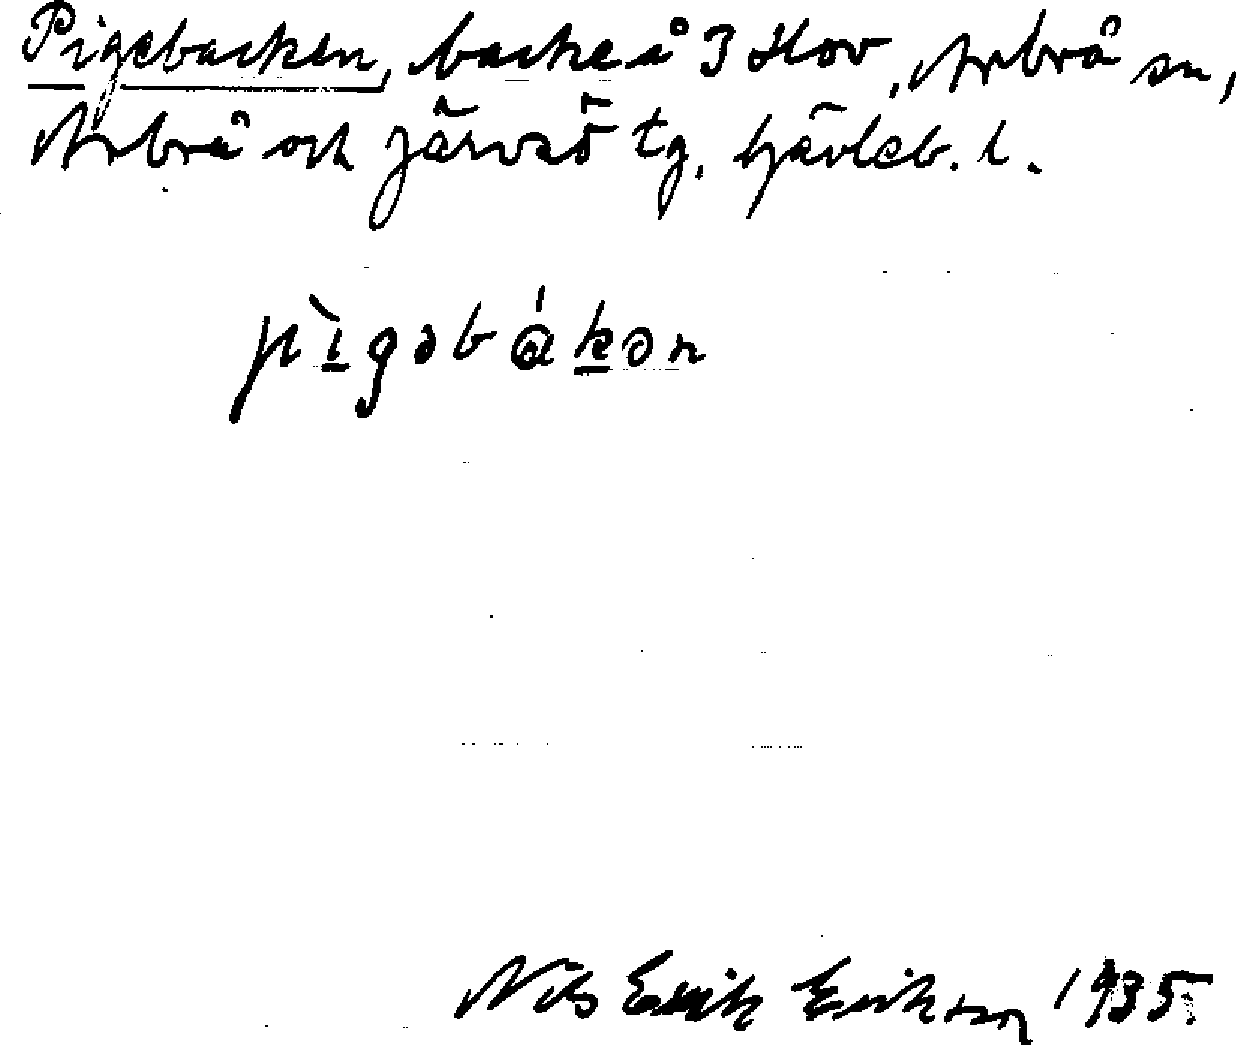 Pigebacken, backe å 3 Hov, Arbrå sn,
Arbrå och Järvsö tg. Gävleb. l.
pìgəbákən
Nils Erik Erikson 1935.